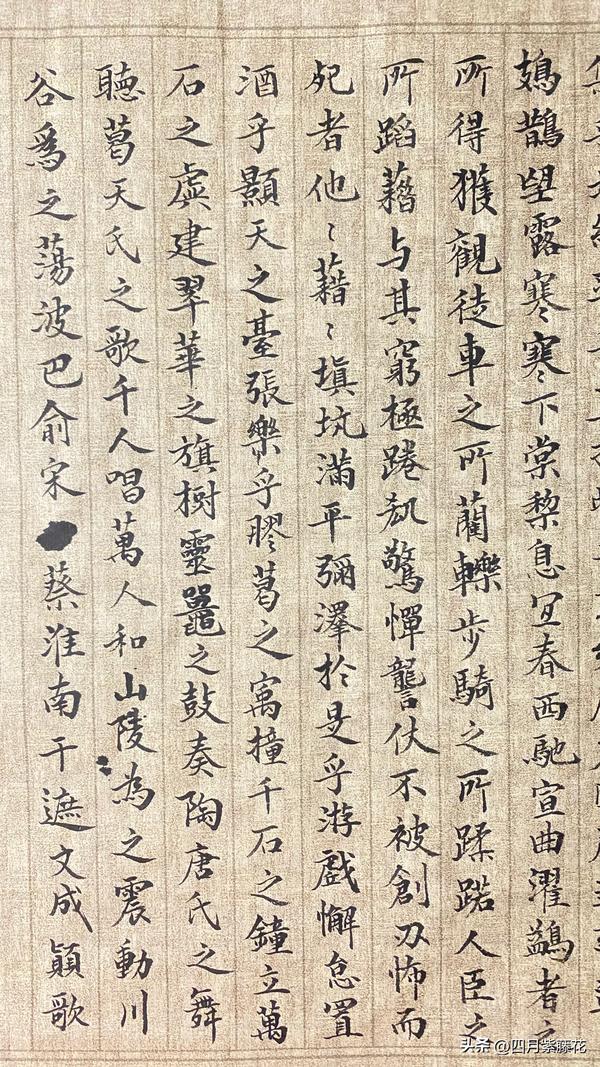 鳷鵲望露寒寒〻下棠棃息宜春西馳宣曲濯鷁者之
所得獲觀徒車之所藺轢步騎之所蹂踖人臣之
所蹈藉与其窮極踡驚憚讋伏不被創刃怖而
死者他〻藉〻填坑滿平彌澤於是乎游戲懈怠置
酒乎顯天之臺張樂乎膠葛之寓撞千石之鐘立萬
石之虡建翠華之旗樹靈鼉之鼓奏陶唐氏之舞
聽葛天氏之歌千人唱萬人和山陵為之震動川
谷爲之蕩波巴俞宋蔡淮南干遮文成顛歌
头条 @四月紫藤花